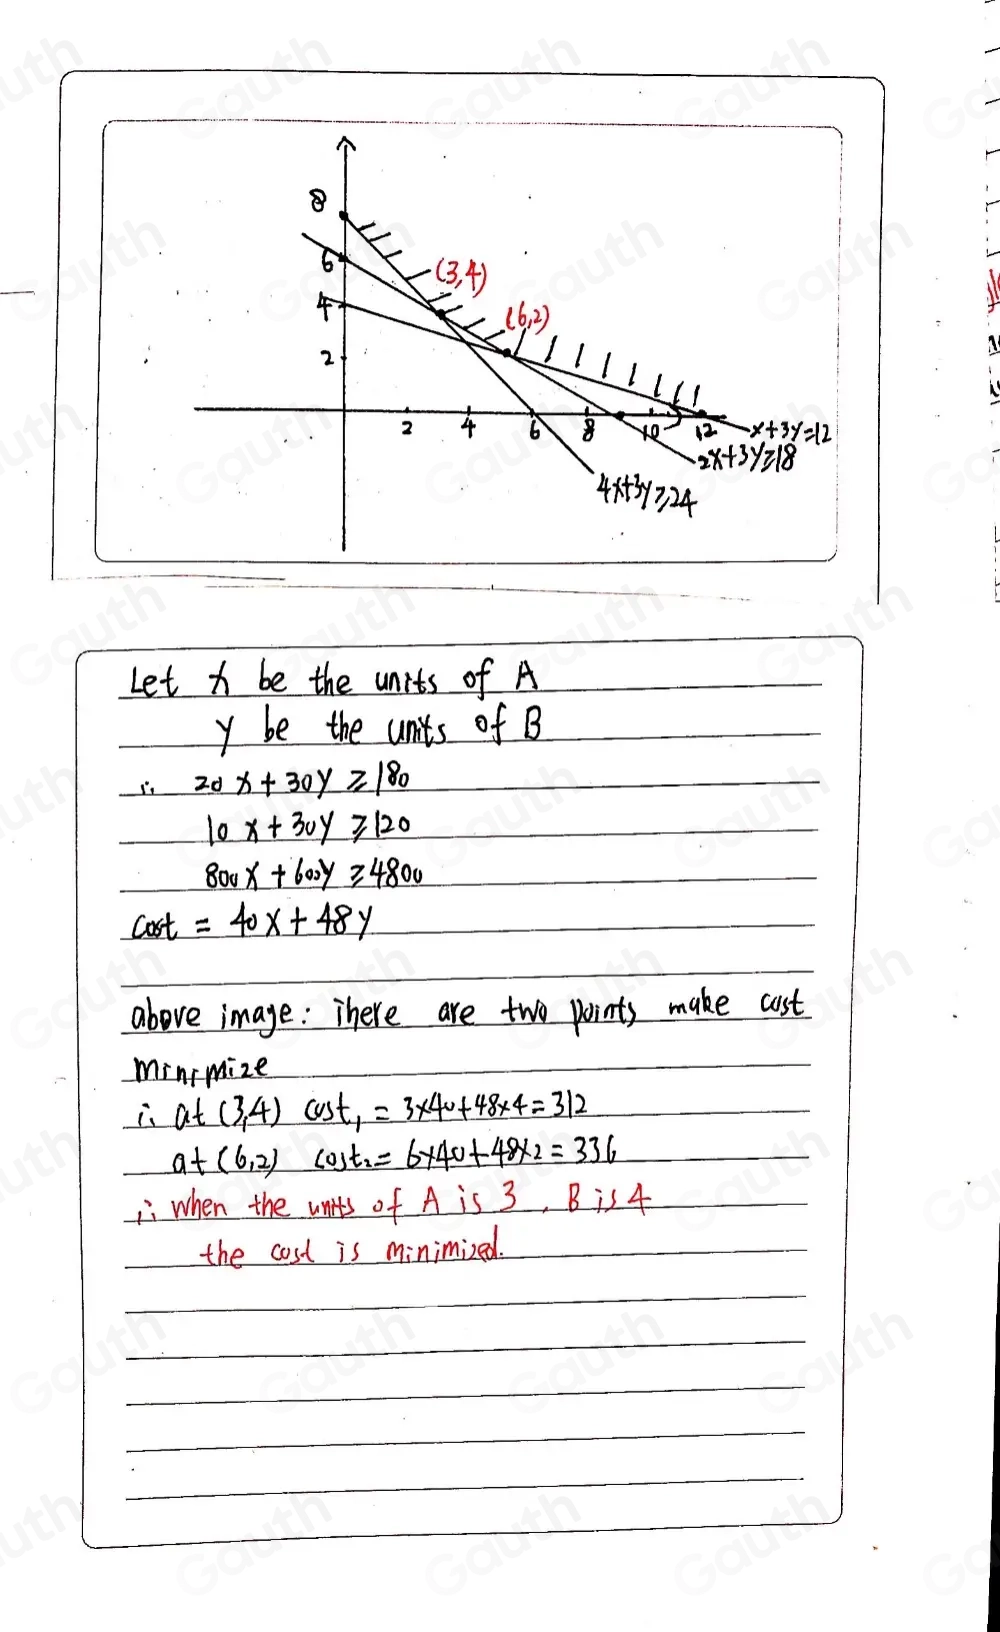 8
6
4
2
(3,4)
(6,2)
2
4
6
8
10
12
x+3y=12
2x+3y≥18
4x+3y≥24
Let x be the units of A
y be the units of B
∴ 20x+30y ≥180
10x+30y ≥120
800x+600y ≥4800
Cost = 40x+48y
above image: there are two points make cost
minimize
∴ at (3,4) cost₁ = 3×40+48×4=312
at (6,2) cost₂= 6×40+48×2=336
∴ when the units of A is 3, B is 4
the cost is minimized.